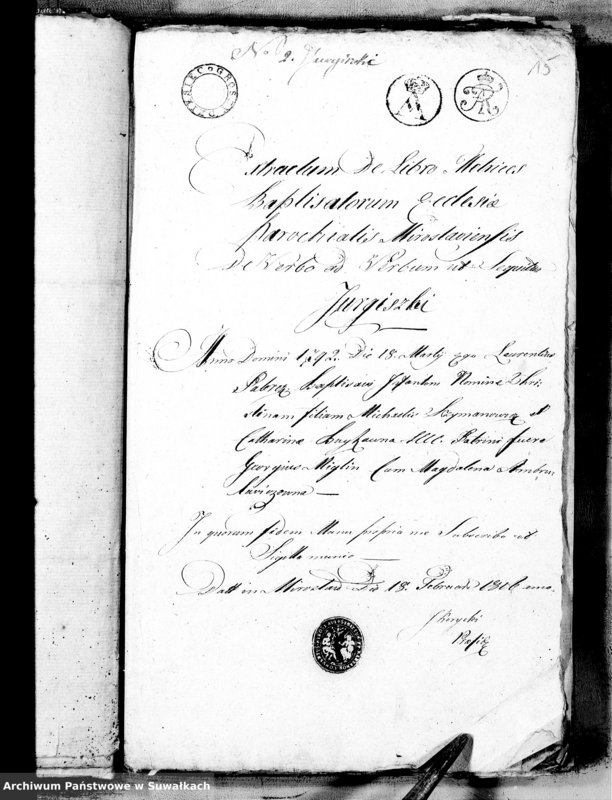 No 2. Jurgiszki
15
DZIESIĘC GROSZ
Extractum De Libro Metrices
Baptisatorum Ecclesiæ
Parochialis Mirosłaviensis
De Verbo ad Verbum ut Sequitur
Jurgiszki
Anno Domini 1792. Die 18. Martij ego Laurentius
Baptisavi Infantem Nomine Chri-
stinam filiam Michaelis Szymanowicz et
Catharinæ LLCC. Patrini fuere
Georgius Miglin Cum Magdalena Ambro-
ziewiczowna
In quorum fidem Manu propria me Subscribo et
Sigillo munio
Datt in Mirosław Die 18. Februarii 1816 anno.